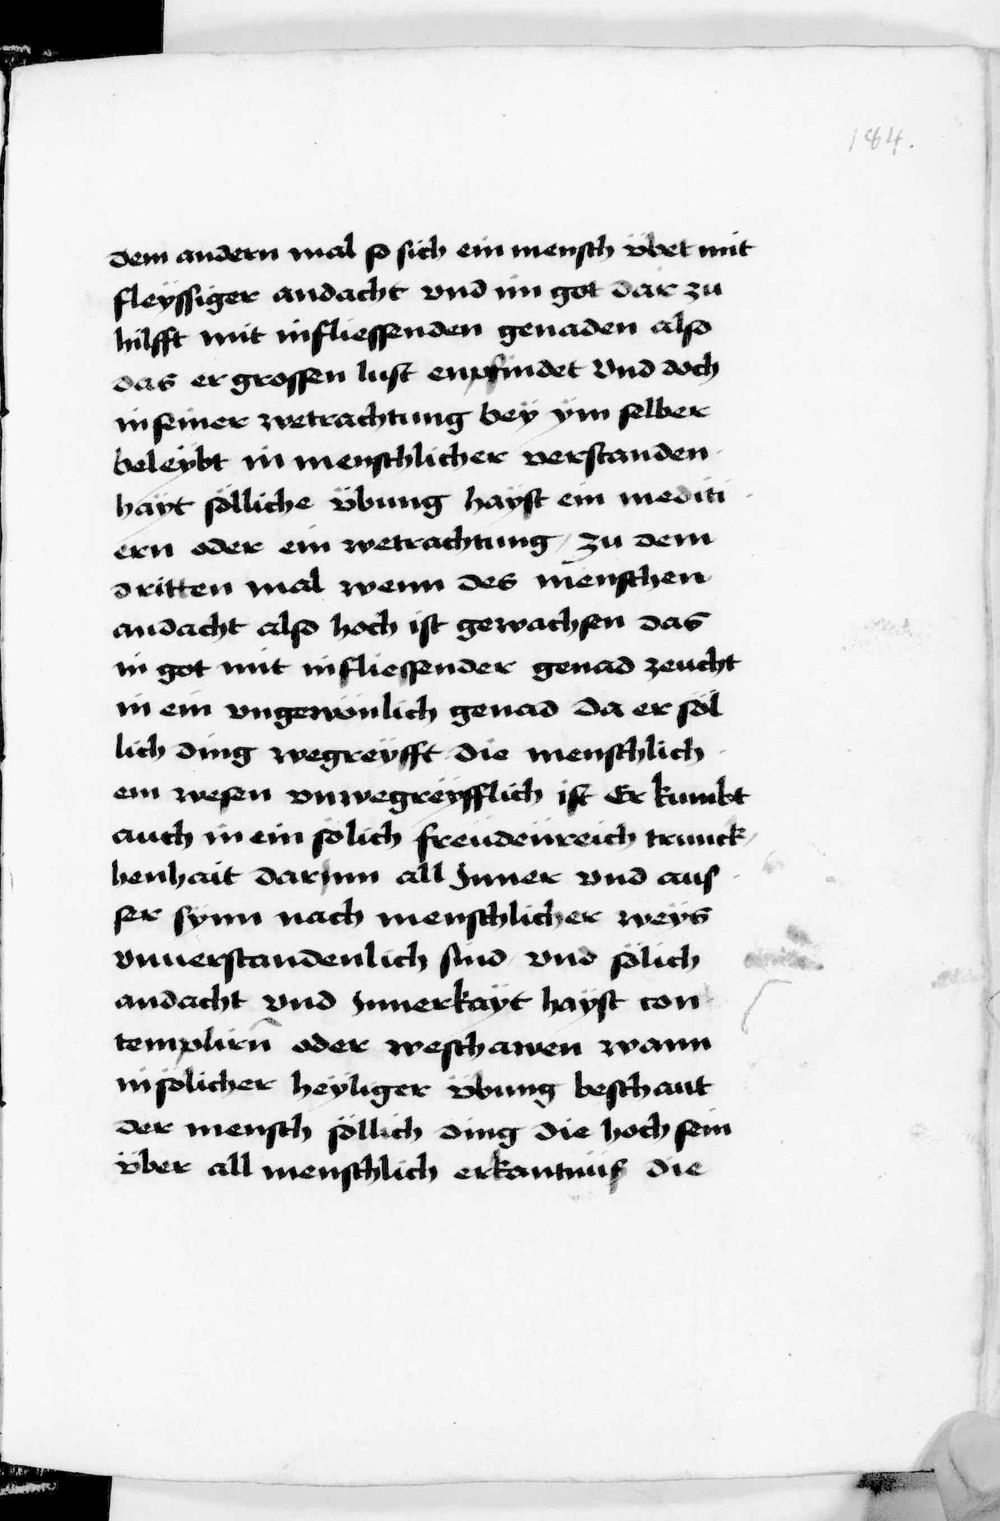 184.
dem andern mal so sich ein mensch übet mit
fleyssiger andacht vnd im got dar zu
hilfft mit infliessenden genaden also
das er grossen lust enpfindet Vnd doch
in seiner wetrachtung bey ÿm selber
beleÿbt in menschlicher verstanden
haÿt sölliche übung haÿst ein mediti
ern oder ein wetrachtung / zu dem
dritten mal wenn des menschen
andacht also hoch ist gewachsen das
in got mit infliessender genad zeucht
in ein vngewönlich genad Da er söl
lich ding wegreÿfft die menschlich
em wesen vnwegreÿfflich ist Er kumbt
auch in ein sölich freüdenreich trunck
henhait darinn all Inner vnd aus
ser sÿnn nach menschlicher weÿs
vnuerstandenlich sind vnd sölich
andacht vnd Innerkaÿt haÿst con
templirn̄ oder weschawen wann
in sölicher heÿliger übung beschaut
der mensch söllich ding die hoch sein
über all menschlich erkantnüß die